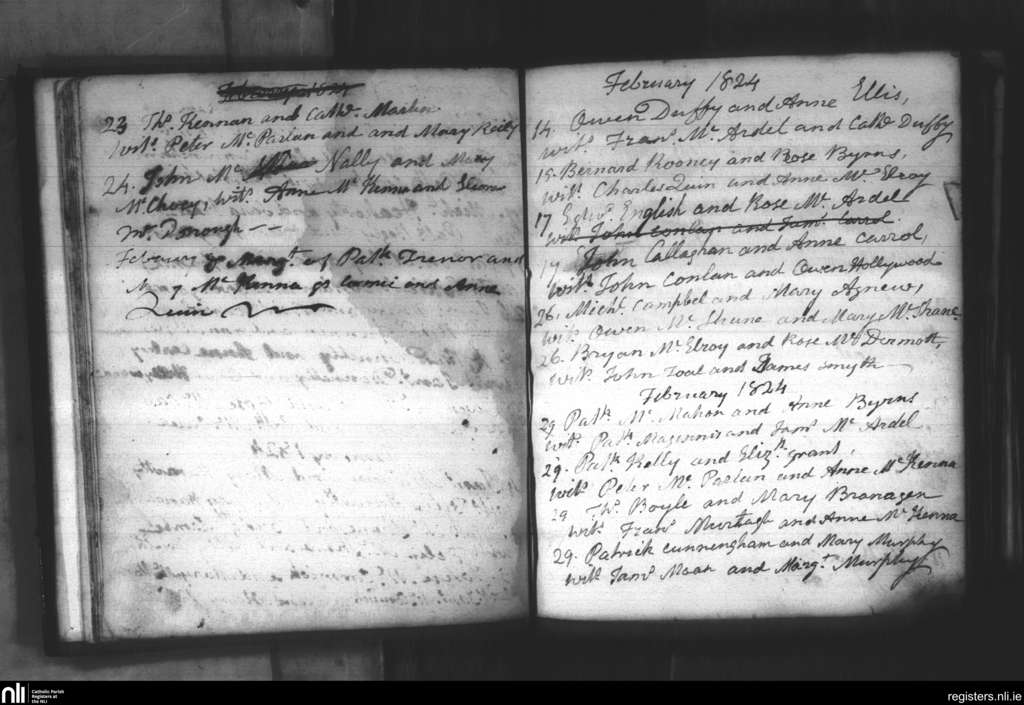 23 Thos. Kennan and Cathe.
wits. Peter Mc. Parlan and and Mary Reily
24. John Mc. Nally and Mary
Mc. Chvey, wits. Anne Mc. Kenna and
Mc. Donough
February Margt. of Patk. Trenor and
Mc. Kenna and Anne
Quin
February 1824
14. Owen Duffy and Anne Ellis,
wits. Frans. Mc. Ardel and Cathe Duffy
15. Bernard Rooney and Rose Byrns,
wits. Charles Quin and Anne Mc. Elroy
17 English and Rose Mc. Ardel
wits. John Conlan and Jams. Carrol
17. John Callaghan and Anne Carrol,
wits. John Conlan and Owen Hollywood
26, Michl. Campbel and Mary Agnew,
wits Owen Mc. Shane and Mary Mc. Shane
26. Bryan Mc. Elroy and Rose Mc. Dermott,
wits. John Toal and James Smyth
February 1824
29 Patk. Mc. Mahon and Anne Byrns
wits. Patk. Magennis and Jams. Mc. Ardel
29. Patk. Kelly and Elizth. Grant,
wits. Peter Mc. Parlan and Anne Mc. Kenna
29 Ths. Boyle and Mary Branagen
wits. Frans. Murtagh and Anne Mc. Kenna
29. Patrick Cunningham and Mary Murphy
wits. Jams. Moan and Margt. Murphy
nli
Catholic Parish
Registers at
the NLI
registers.nli.ie